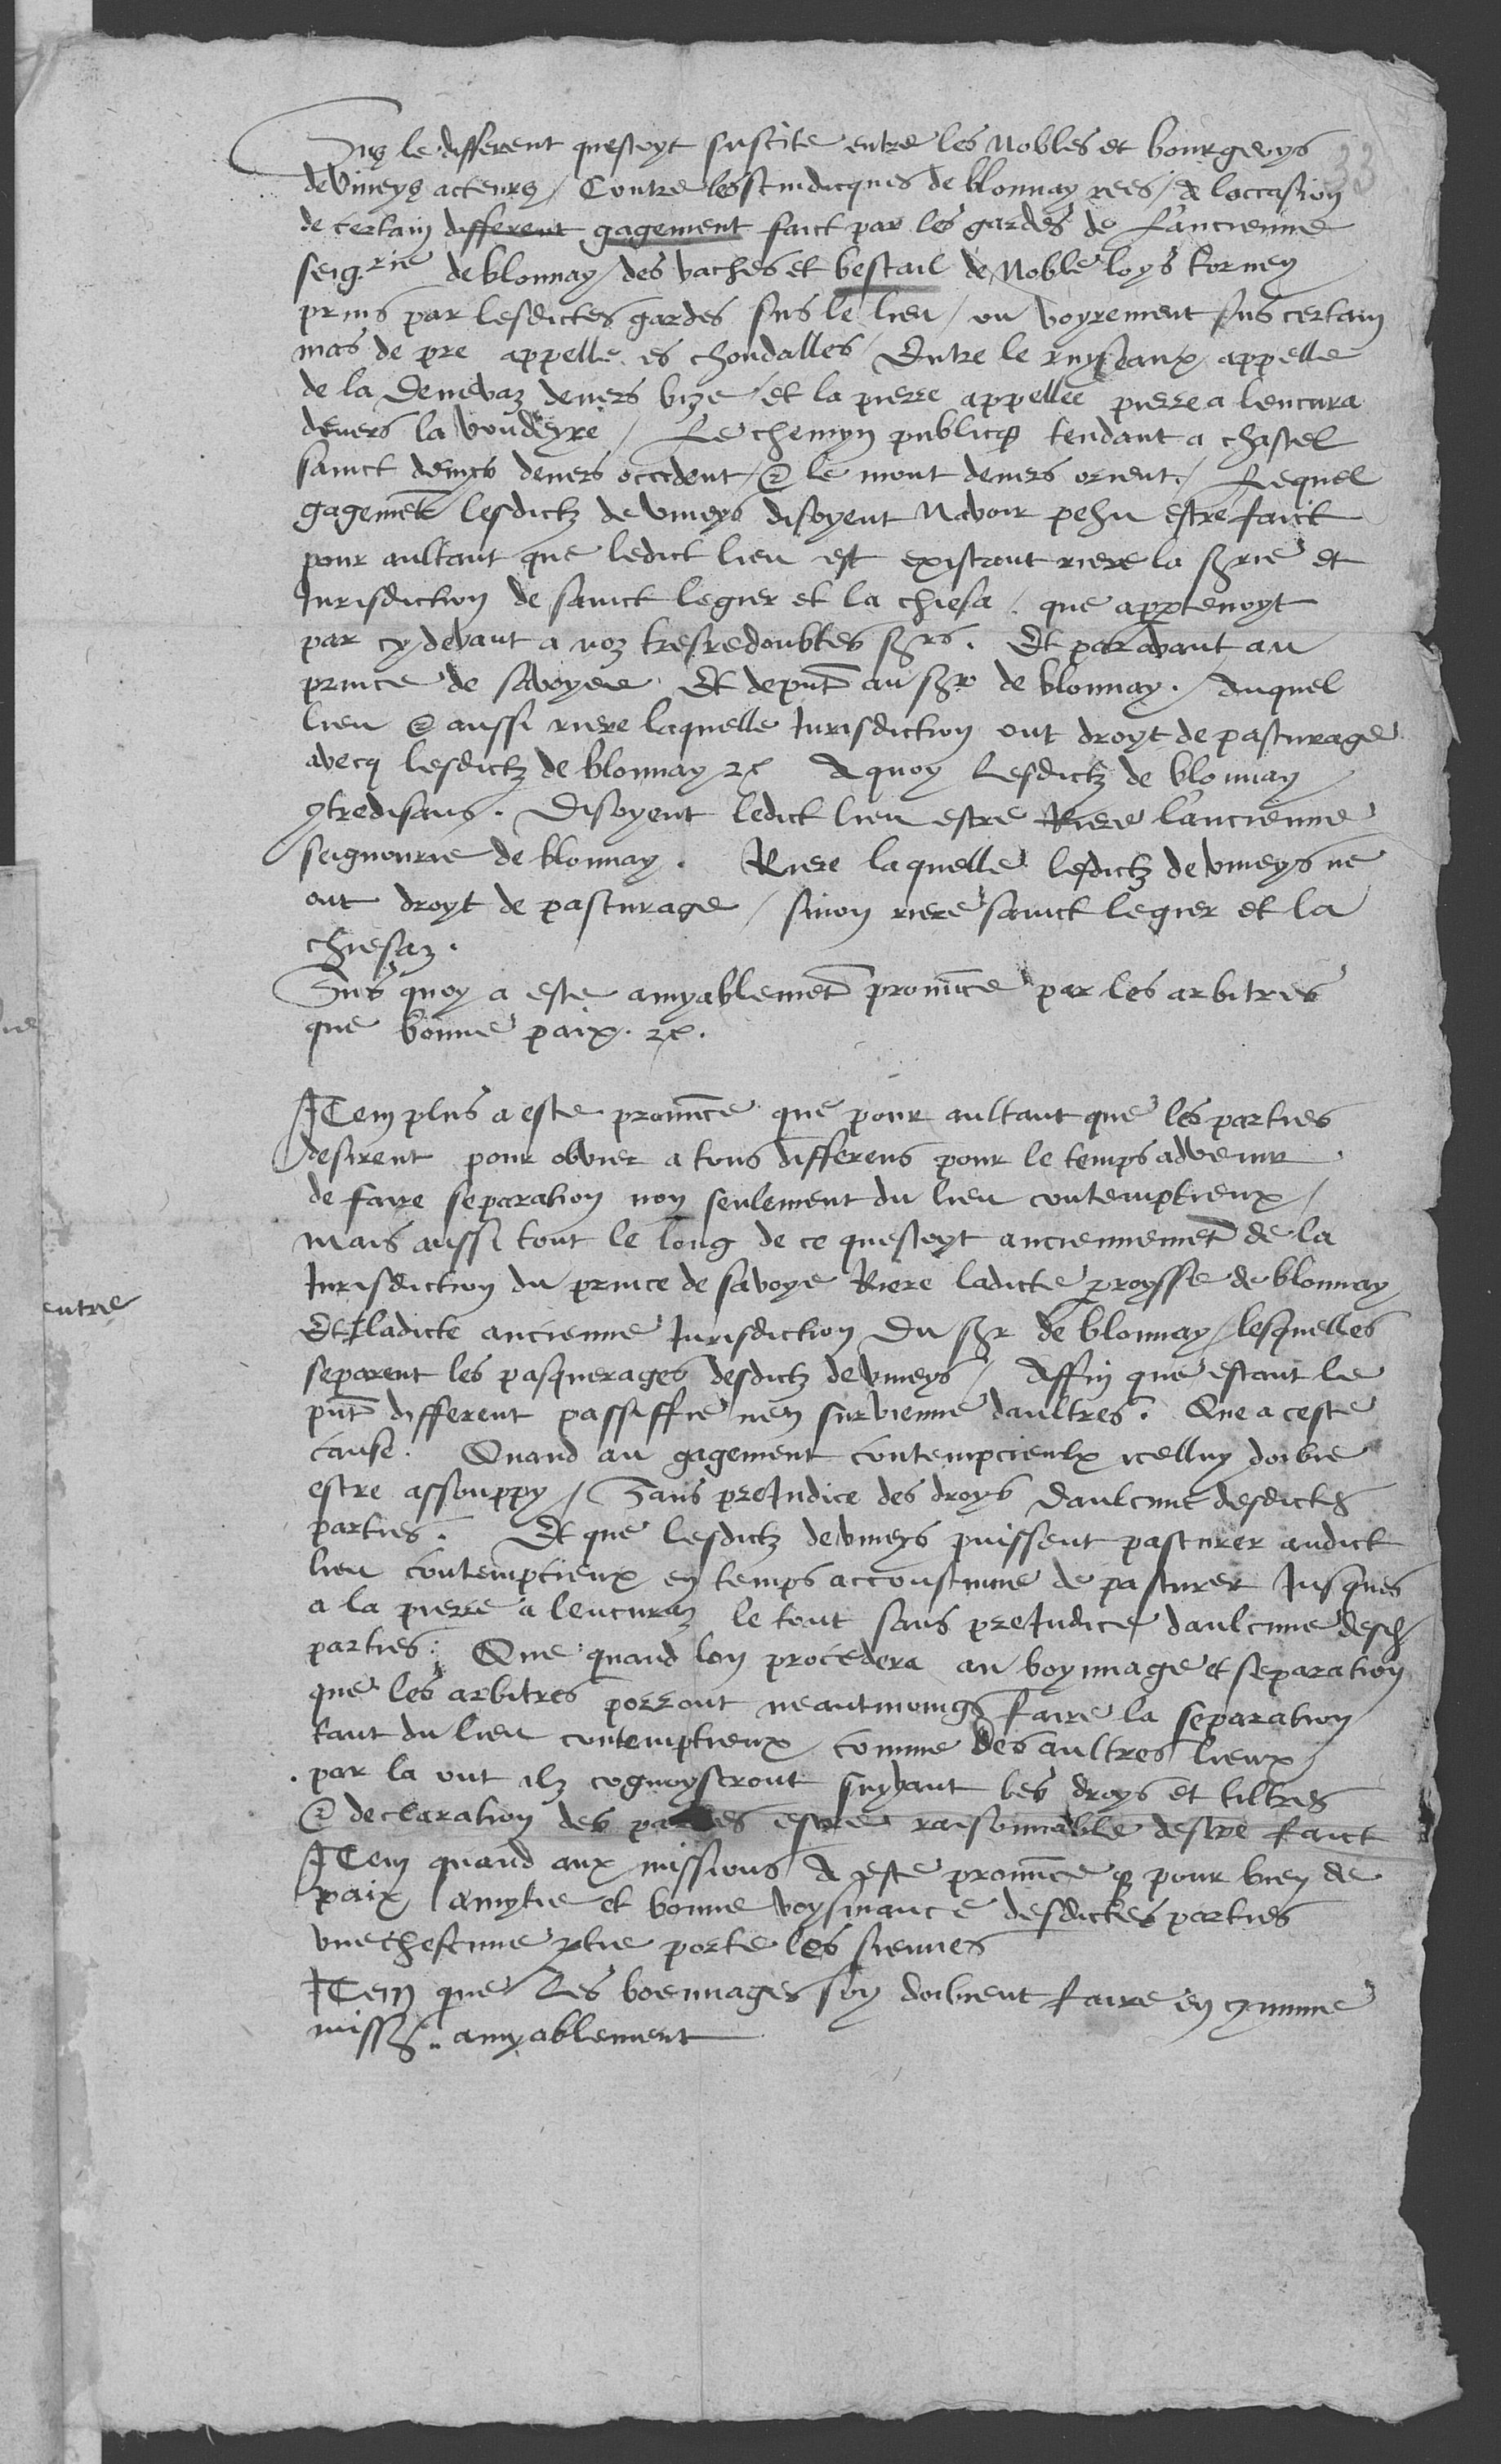 Sus le different questoyt suscite entre les Nobles et bourgeoys
33
de Viveys acteurs / Contre les scindicques de blonnay rees / A loccasion
de certain different gagement faict par les gardes de Lancienne
seig.rie de blonnay / des vaches et bestail de Noble loys torney
prins par lesdictes gardes sus le lieu / ou voyrement sus certain
mas de pre appelle es chondalles / Entre le ruyseaux appelle
de la Denevaz devers bize / et la pierre appellee pierre a lencura
devers la voudeyre / Le chemyn publicq tendant a chastel
sainct denys devers occident / & le mont devers orient / Lequel
gagemet lesdictz de viveys disoyent Navoir pehu estre faict
pour aultant que ledict lieu est existent riere la sgrie et
Jurisdiction de sainct legier et la chiesa . que appertenoyt
par cy devant a noz tresredoubtes sgrs . Et paravant au
prince de savoye Et deput au sgr de blonnay . Auquel
lieu & aussi riere laquelle Jurisdiction ont droyt de pasturage
avecq lesdictz de blonnay &c A quoy Lesdictz de blonnay
9tredisans . Disoyent ledict lieu estre Riere lancienne
seignourie de blonnay . Riere laquelle lesdictz de viveys ne
ont droyt de pasturage / sinon riere sainct legier et la
chiesaz .
Sus quoy a este amyablemet pronunce par les arbitres
que bonne paix . &c .
ITem plus a este pronunce que pour aultant que les parties
desirent pour obvier a tous differens pour le temps advenir
de faire separation non seulement du lieu contemptieux /
mais aussi tout le long de ce questoyt anciennemet de la
Jurisdiction du prince de savoye Riere ladicte proysse de blonnay
Et ladicte ancienne Jurisdiction Du sgr de blonnay / lesquelles
separent les pasquerages desdictz de viveys / Affin que estant le
pnt different passiffie nen survienne daultres . Que a ceste
cause . Quand au gagement contempcieulx icelluy doibve
estre assouppy / Sans preJudice des droys Daulcune desdictes
parties . Et que lesdictz de viveys puissent pasturer audict
lieu contemptieux en temps accoustume de pasturer Jusques
a la pierre a lencuraz le tout sans preJudice daulcune desd
parties : Que quand lon procedera au boynnage et separation
que les arbitres porront neantmoings faire la separation
tant du lieu contemptieux comme des aultres lieux
par la ont ilz cognoystront suyvant les droys et tiltres
& declaration des parties estre raisonnable destre faict
ITem quand aux missions A este pronunce q pour bien de
paix / amytie et bonne voysinance desdictes parties
une chescune ptie porte les siennes
ITem que Les boennages soy doibvent faire en 9mune
miss . amyablement
entre